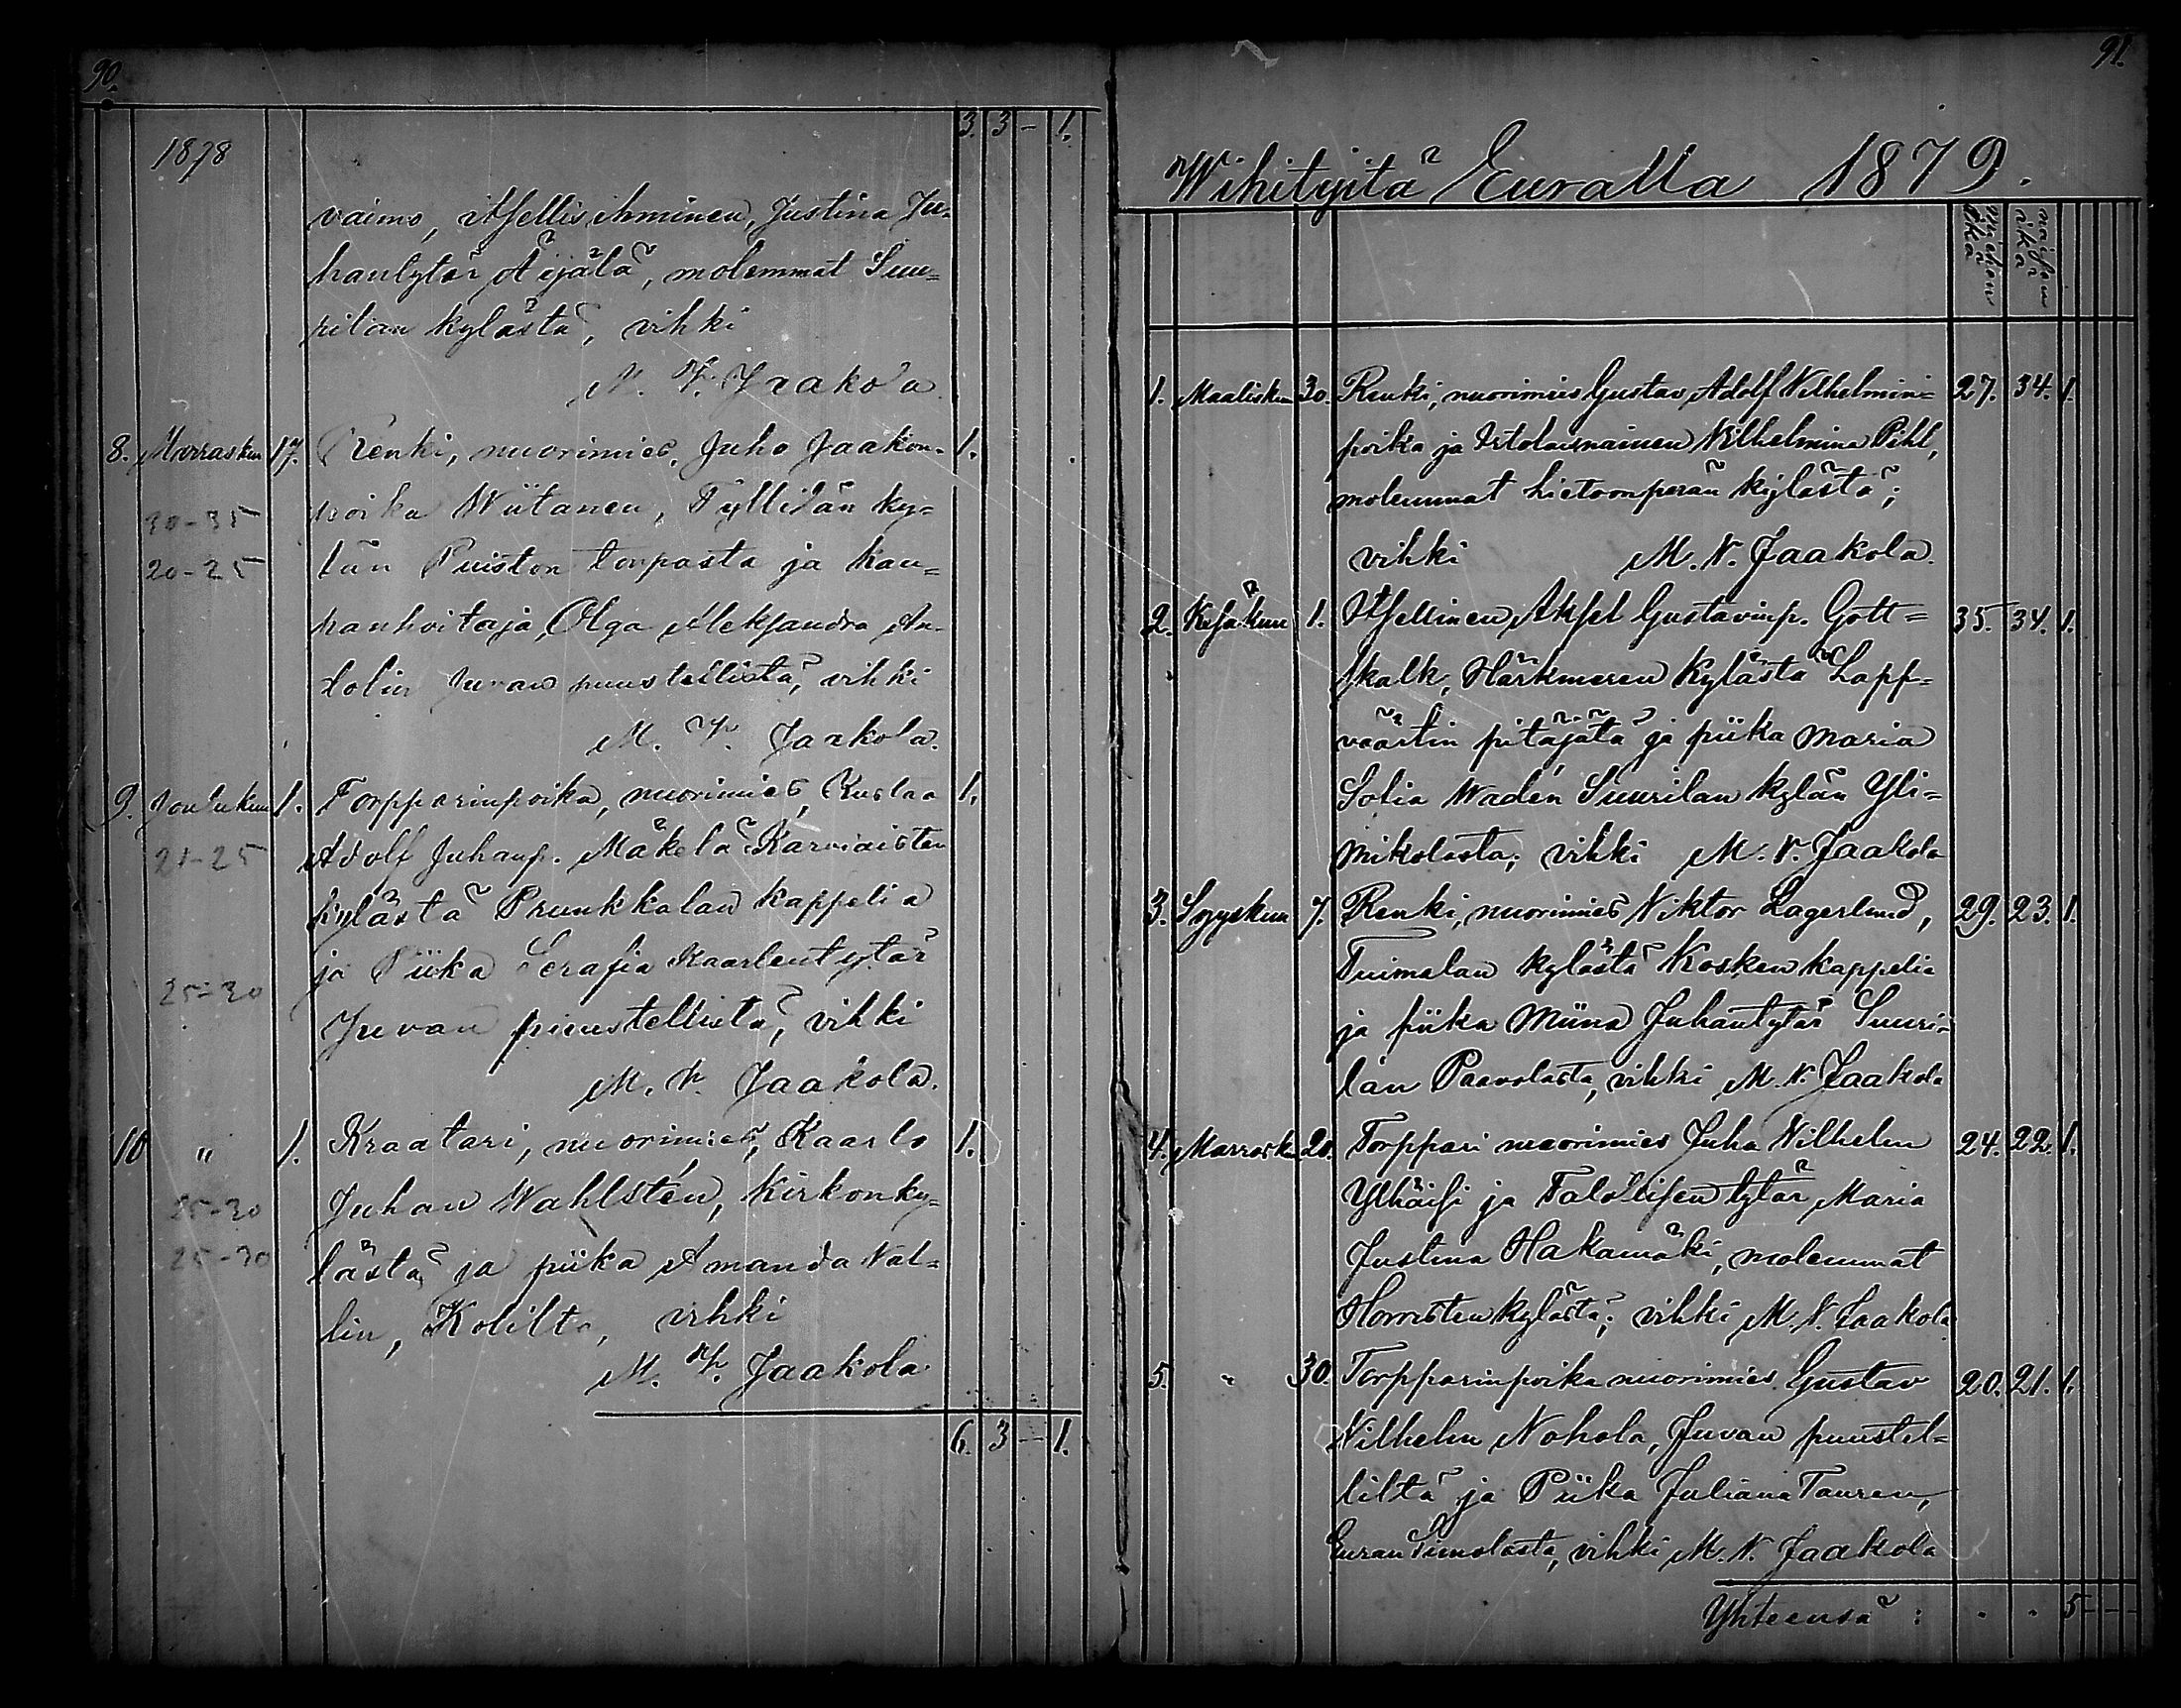 90.
3. 3 - 1.
1878
vaimo, itsellis ihminen, Justina Ju=
hantytär Äijälä, molemmat Suu=
rilan kylästä, vihki
M. V. Jaakola.
8. Marraskuu 17. Renki, nuorimies, Juho Jaakon= 1.
poika Wiitanen, Tyllilän ky=
30-35
län Puiston torpasta ja kau=
20-25
hanhoitaja, Olga Aleksandra An=
tolin Juvan puustellista, vihki
M. V. Jaakola.
9. Joulukuu 1. Torpparinpoika, nuorimies, Kustaa 1.
Adolf Juhanp. Mäkelä Karviaisten
21-25
kylästä Prunkkalan kappelia
ja Piika Serafia Kaarlentytär
25-30
Juvan puustellista, vihki
M. V. Jaakola.
10 " 1. Kraatari, nuorimies, Kaarlo 1.
Juhan Wahlstén, Kirkonky=
25-30
lästä, ja piika Amanda Wal=
25-30
lin, Kolilta, vihki
M. V. Jaakola.
6. 3 - 1.
91.
Wihityitä Euralla 1879.
miehen ikä
naisen ikä
1. Maalisku 30. Renki, nuorimies Gustav Adolf Wilhelmin= 27. 34. 1.
poika ja Irtolaisnainen Wilhelmina Pihl,
molemmat hietoonperän kylästä;
vihki M. V. Jaakola.
2. Kesäkuu 1. Itsellinen Aksel Gustavinp. Gott= 35. 34. 1.
skalk, Härkmeren Kylästä Lapf=
väärtin pitäjätä ja piika Maria
Sofia Wadén Suurilan kylän Yli=
mikolasta; vihki M. V. Jaakola
3. Syyskuu 7. Renki, nuorimies Viktor Lagerlund, 29. 23. 1.
Tuimalan kylästä Kosken kappelia
ja piika Miina Juhantytär Suuri=
lan Paavolasta, vihki M. V. Jaakola
4. Marrask. 20. Torppari nuorimies Juha Wilhelm 24. 22. 1.
Ylhäisi ja Talollisen tytär Maria
Justina Hakamäki, molemmat
Honniston kylästä; vihki M. V. Jaakola
5. " 30. Torpparinpoika nuorimies Gustav 20. 21. 1.
Wilhelm Nohola, Juvan puustel=
liltä ja Piika Juliana Tauren,
Euran Simolasta, vihki M. V. Jaakola
Yhteensä: " " 5 - - -